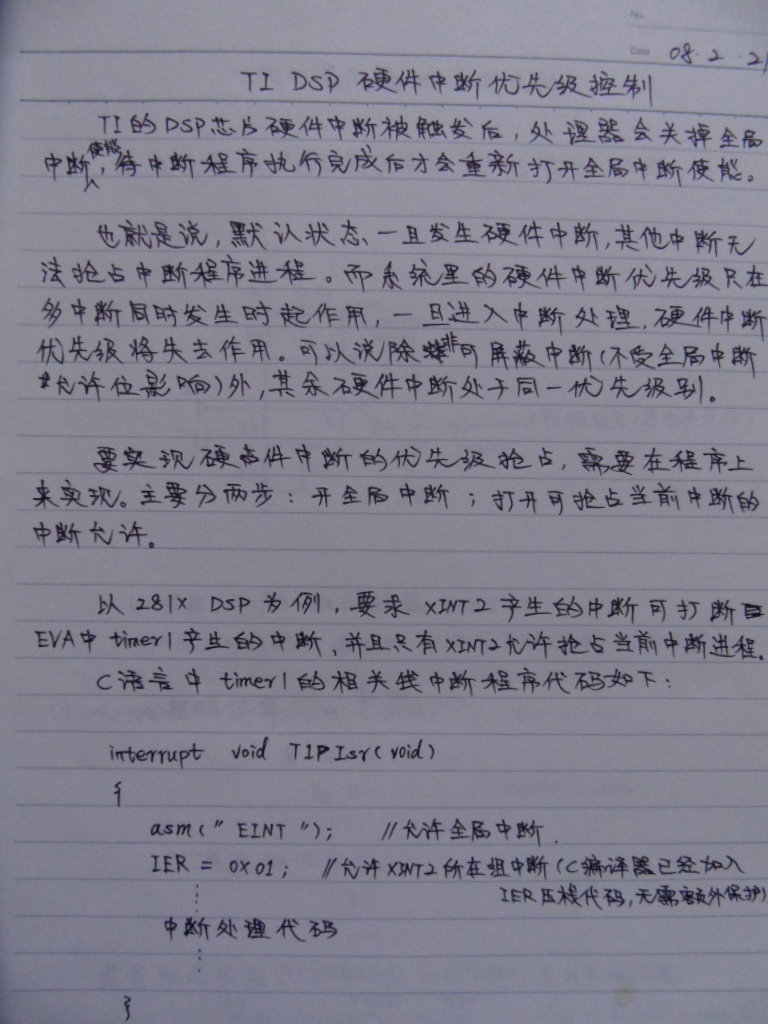 No.
Date 08.2.21
TI DSP 硬件中断优先级控制
TI的DSP芯片硬件中断被触发后，处理器会关掉全局
中断使能，待中断程序执行完成后才会重新打开全局中断使能。
也就是说，默认状态、一旦发生硬件中断，其他中断无
法抢占中断程序进程。而系统里的硬件中断优先级只在
多中断同时发生时起作用，一旦进入中断处理，硬件中断
优先级将失去作用。可以说除非可屏蔽中断（不受全局中断
允许位影响）外，其余硬件中断处于同一优先级别。
要实现硬件中断的优先级抢占，需要在程序上
来实现。主要分两步：开全局中断；打开可抢占当前中断的
中断允许。
以 281X DSP 为例，要求 XINT2 产生的中断可打断
EVA中 timer1 产生的中断，并且只有XINT2允许抢占当前中断进程。
C语言中 timer1 的相关线中断程序代码如下：
interrupt void T1PIsr(void)
{
asm(" EINT "); //允许全局中断.
IER = 0X01; //允许XINT2所在组中断(C编译器已经加入
IER压栈代码,无需额外保护)
⋮
中断处理代码
⋮
}